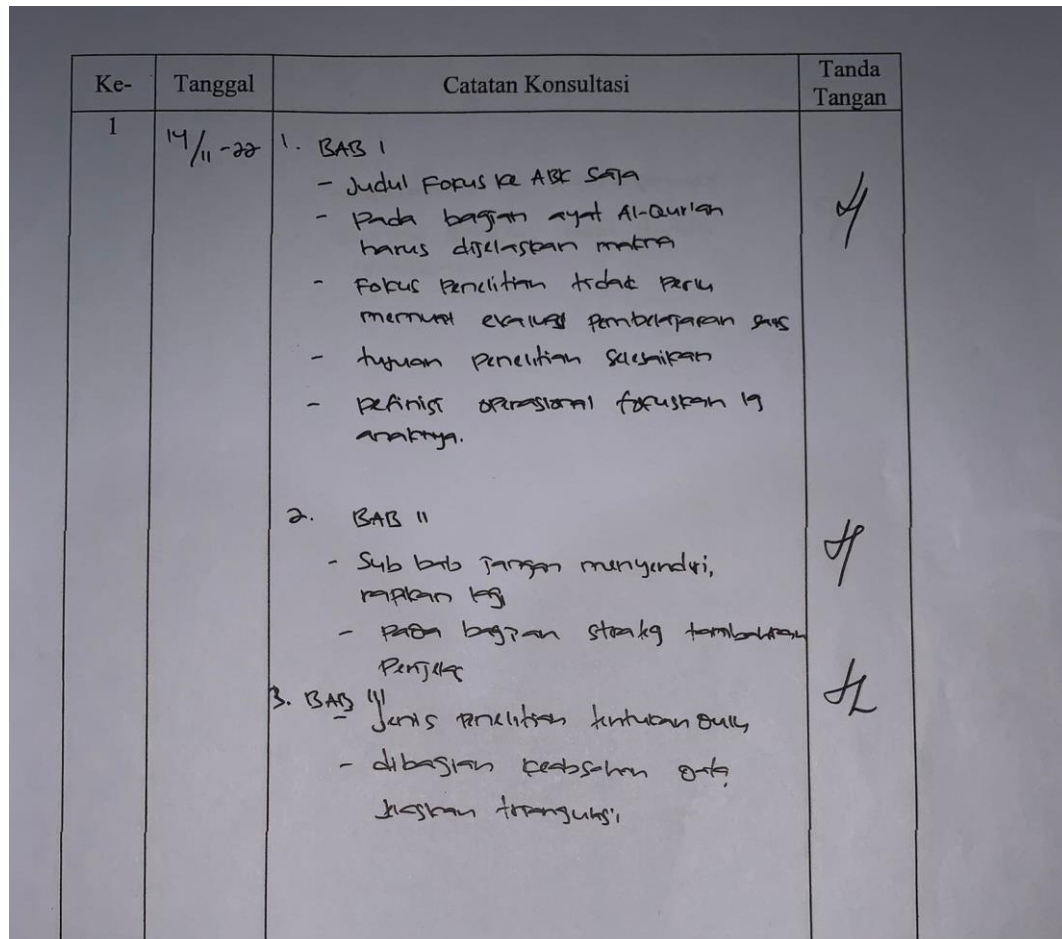 Ke- Tanggal Catatan Konsultasi Tanda Tangan
1 14/11-22 1. BAB I
- Judul Fokus ke ABK saja
- Pada bagian ayat Al-Qur'an
harus dijelaskan makna
- Fokus Penelitian tidak perlu
memuat evaluasi Pembelajaran
- tujuan penelitian selesaikan
- Definisi operasional fokuskan lg
anaknya.
2. BAB II
- Sub bab jangan menyendiri,
rapikan lg
- Pada bagian strategi tambahkan
Penjelas
3. BAB III
- Jenis penelitian tentukan dulu
- dibagian keabsahan data
jelaskan triangulasi